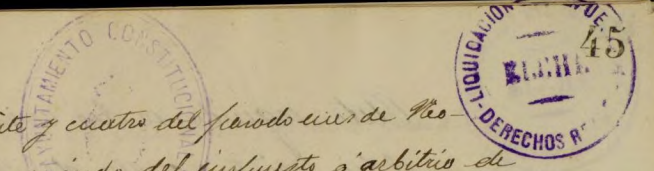 AYUNTAMIENTO CONSTITUCIONAL
LIQUIDACIÓN
45
ELCHE
DERECHOS
te y cuatro del pasado mes de No-
del impuesto ó arbitrio de